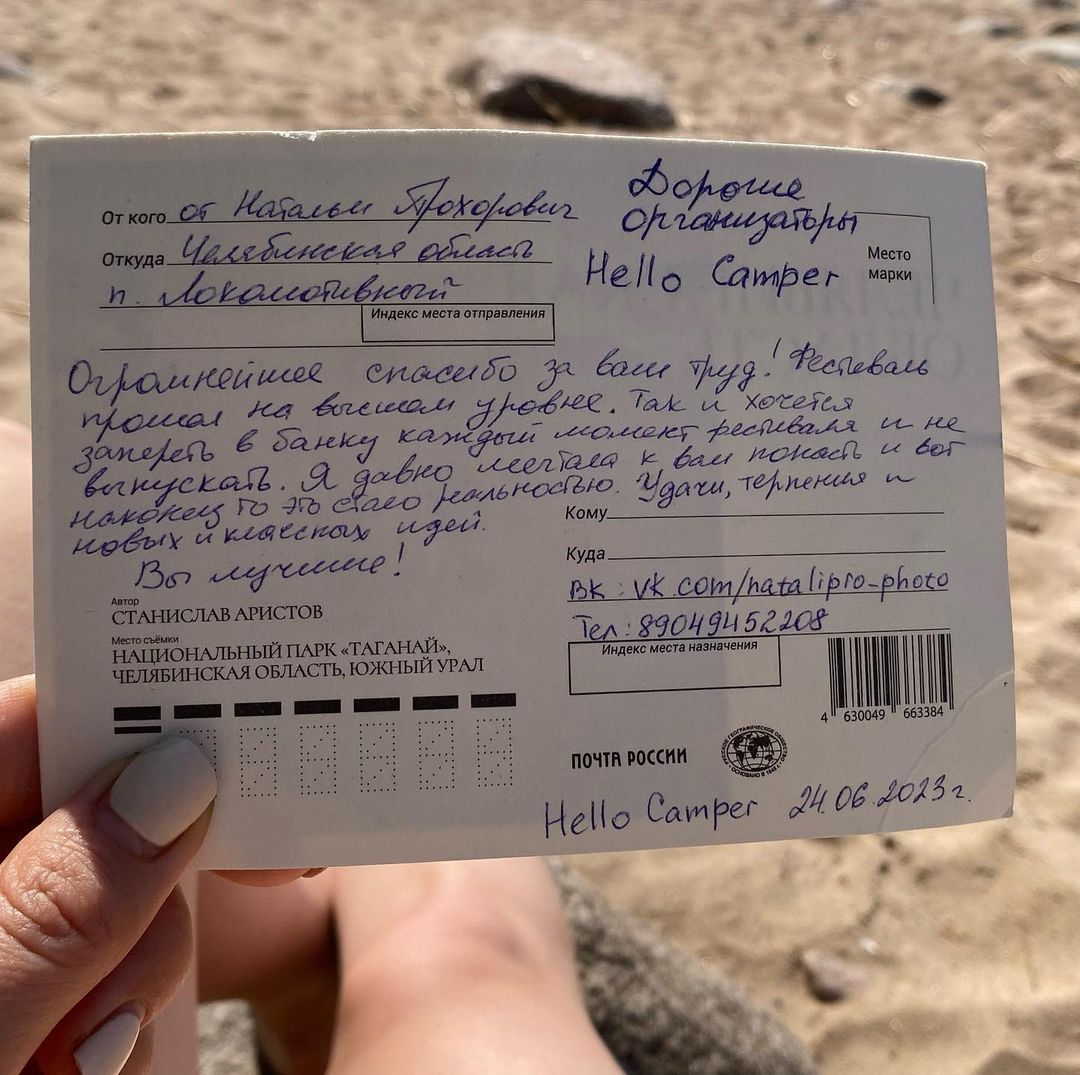 От кого от Натальи Прохорович
Откуда Челябинская область
п. Локомотивный
Индекс места отправления
Дорогие
организаторы
Hello Camper
Место
марки
Огромнейшее спасибо за ваш труд! Фестиваль
прошел на высшем уровне. Так и хочется
запереть в банку каждый момент фестиваля и не
выпускать. Я давно мечтала к вам попасть и вот
наконец то это стало реальностью. Удачи, терпения и
новых и классных идей.
Вы лучшие!
Кому
Куда
ВК: vk.com/natalipro-photo
Тел: 89049452208
Индекс места назначения
Автор
СТАНИСЛАВ АРИСТОВ
Место съёмки
НАЦИОНАЛЬНЫЙ ПАРК «ТАГАНАЙ»,
ЧЕЛЯБИНСКАЯ ОБЛАСТЬ, ЮЖНЫЙ УРАЛ
4 630049 663384
ПОЧТА РОССИИ
РУССКОЕ ГЕОГРАФИЧЕСКОЕ ОБЩЕСТВО
ОСНОВАНО В 1845 г.
Hello Camper 24.06.2023г.